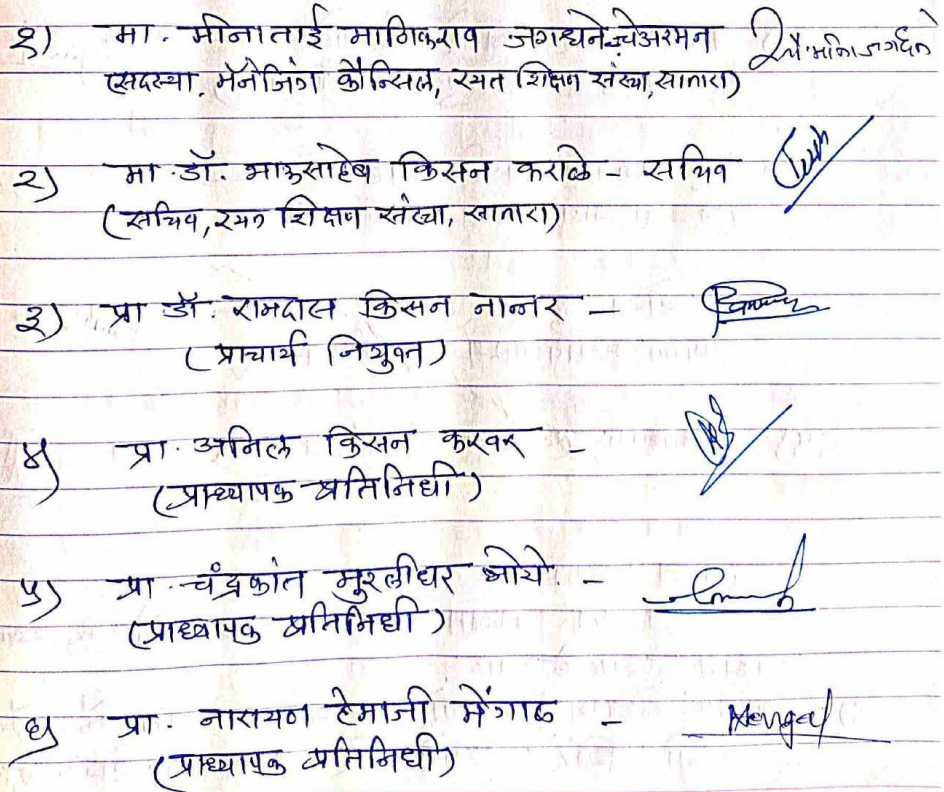 १) मा. मीनाताई माणिकराव जगधने-चेअरमन सौ. मीना जगधने
(सदस्या, मॅनेजिंग कौन्सिल, रयत शिक्षण संस्था, सातारा)
२) मा. डॉ. भाऊसाहेब किसन कराळे - सचिव
(सचिव, रयत शिक्षण संस्था, सातारा)
३) प्रा डॉ. रामदास किसन नान्नर -
(प्राचार्य नियुक्त)
४) प्रा. अनिल किसन करवर -
(प्राध्यापक प्रतिनिधी)
५) प्रा. चंद्रकांत मुरलीधर भोये -
(प्राध्यापक प्रतिनिधी)
६) प्रा. नारायण हेमाजी मेंगाळ - Mengal
(प्राध्यापक प्रतिनिधी)